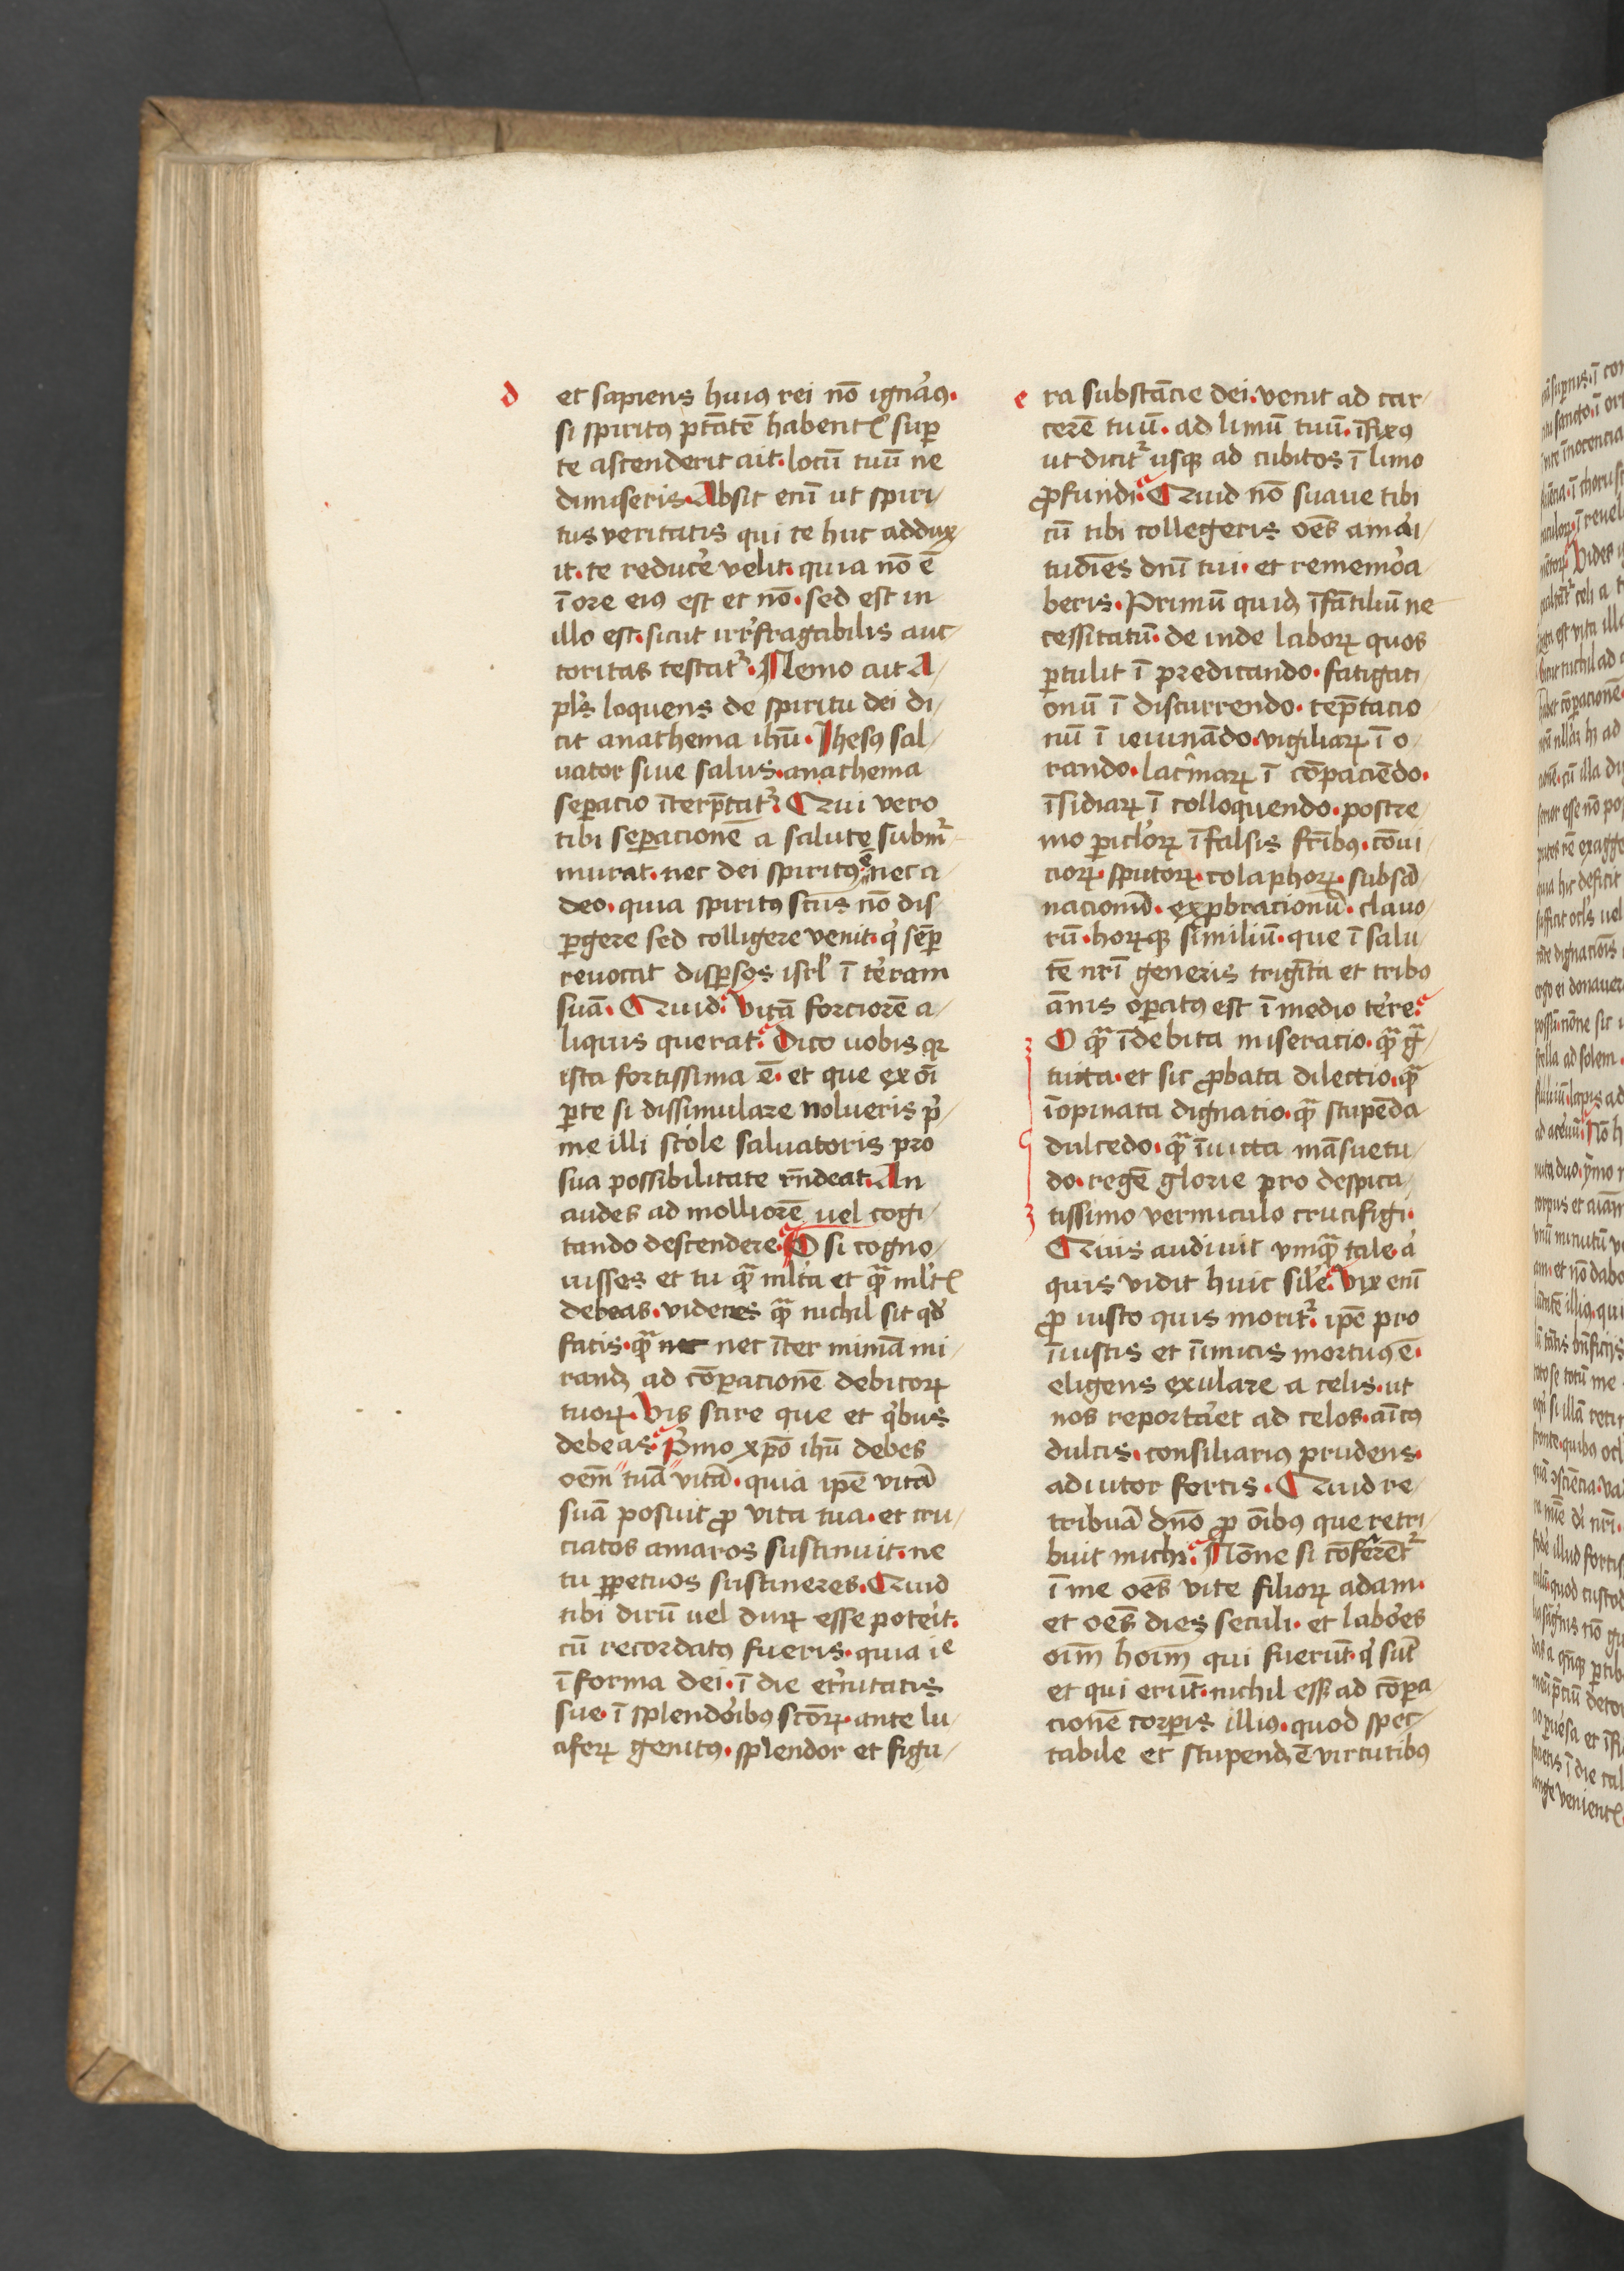 d
et sapiens huiꝰ rei nō ignaꝰ.
si spiritꝰ ptātē habentꝭ suꝑ
te ascenderit ait. locū tuū ne
dimiseris. Absit enī ut spiri
tus veritatis qui te huc addux
it. te reducͤe velit. quia nō ē
ī ore eiꝰ est et nō. sed est in
illo est. sicut irrͤfragabilis auc
toritas testatᷣ. Nemo ait A
pls̄ loquens de spiritu dei di
cit anathema ihū. Jhesꝰ sal
uator siue salus. anathema
seꝑacio īterp̄tatᷣ. Qui vero
tibi seꝑacionē a salute submᷣ
murat. nec dei spiritꝰ ē nec a
deo. quia spiritꝰ sc̄us nō dis
ꝑgere sed colligere venit. qͥ sēꝑ
reuocat disꝑsos isrl̓ ī tͤram
suā. Quid. vitā forciorē a
liquis querat. Dico uobis qꝛ
ista fortissima ē. et que ex oī
ꝑte si dissimulare nolueris pͥ
me illi scole saluatoris pro
sua possibilitate rn̄deat. An
audes ad molliorē uel cogi
tando descendere. O si cogno
uisses et tu qᷓ ml̓ta et qᷓ ml̓tꝭ
debeas. videres qᷓ nichil sit qd̓
facis. qᷓ nec nec īter mimā mi
randꝫ ad cōꝑacionē debitoꝝ
tuoꝝ. Vis scire que et qͥbus
debeas. Pͥmo xp̄o ihū debes
oēm tuā vitā. quia ip̄e vitā
suā posuit ꝓ vita tua. et cru
ciatos amaros sustinuit. ne
tu ꝑpetuos sustineres. Quid
tibi dirū uel duꝝ esse potͤit.
cū recordatꝰ fueris. quia ie
ī forma dei. ī die etͤnitatis
sue. ī splendoͥibꝰ sc̄oꝝ. ante lu
cifeꝝ genitꝰ. splendor et figu
e
ra substācie dei. venit ad car
cerē tuū. ad limū tuū. īfixꝰ
ut dicitᷣ usqꝫ ad cubitos ī limo
ꝓfundi. Quid nō suaue tibi
cū tibi collegeris oēs amaͥi
tudīes dnī tui. et rememoͬa
beris. Primū quidꝫ īfātiliū ne
cessitatū. de inde laboꝝ quos
ꝑtulit ī predicando. fatigati
onū ī discurrendo. tep̄tacio
nū ī ieiunādo. vigiliaꝝ ī o
rando. lacͥmaꝝ ī cōpaciēdo.
īsidiaꝝ ī colloquendo. postre
mo ꝑicl̓oꝝ ī falsis fr̄ibꝰ. cōui
cioꝝ. sputoꝝ. colaphoꝝ. subsā
nacionū. exꝓbracionū. clauo
rū. hoꝝqꝫ similiū. que ī salu
tē nr̄i generis trigīta et tribꝰ
ānis oꝑatꝰ est ī medio tͤre.
O qᷓ īdebita miseracio. qᷓ gᷓ
tuita. et sic ꝓbata dilectio. qᷓ
īopinata dignatio. qᷓ stupēda
dulcedo. qᷓ īuicta māsuetu
do. regē glorie pro despica
tissimo vermiculo crucifigi.
Quis audiuit vmqᷓ tale. aͭ
quis vidit huic sil̓e. Vix enī
ꝓ iusto quis moritᷣ. ip̄e pro
īiustis et īimicis mortuꝰ ē.
eligens exulare a celis. ut
nos reportaͬet ad celos. aīcꝰ
dulcis. consiliariꝰ prudens.
adiutor fortis. Quid re
tribuā dn̄o ꝓ oībꝰ que retri
buit michi. Nōne si cōferentᷣ
ī me oēs vite filioꝝ adam.
et oēs dies seculi. et laboͬes
oīm hoīm qui fuerūt. qͥ sūt
et qui erūt. nichil esset ad cōꝑa
cionē corꝑis illiꝰ. quod spec
tabile et stupendꝫ ē virtutibꝰ